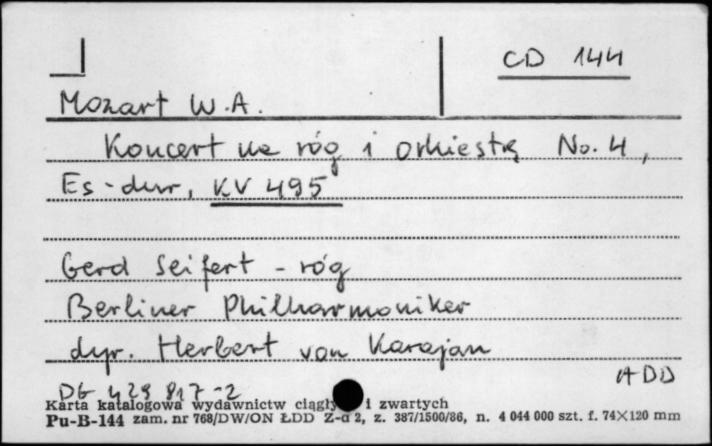 CD 144
Mozart W.A.
Koncert na róg i orkiestrę No. 4,
Es-dur, KV 495
Gerd Seifert - róg
Berliner Philharmoniker
dyr. Herbert von Karajan
ADD
DG 429 817-2
Karta katalogowa wydawnictw ciągły i zwartych
Pu-B-144 zam. nr 768/DW/ON ŁDD Z-d 2, z. 387/1500/86, n. 4 044 000 szt. f. 74×120 mm